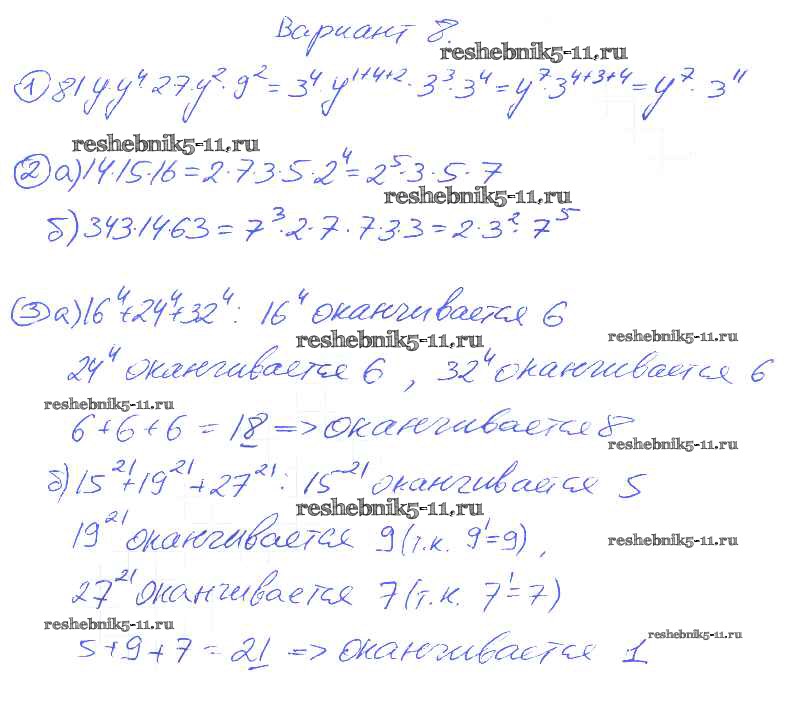 Вариант 8.
reshebnik5-11.ru
① 81y·y⁴·27·y²·9² = 3⁴·y¹⁺⁴⁺²·3³·3⁴ = y⁷·3⁴⁺³⁺⁴ = y⁷·3¹¹
reshebnik5-11.ru
② а) 14·15·16 = 2·7·3·5·2⁴ = 2⁵·3·5·7
reshebnik5-11.ru
б) 343·14·63 = 7³·2·7·7·3·3 = 2·3²·7⁵
③ а) 16⁴+24⁴+32⁴: 16⁴ оканчивается 6
reshebnik5-11.ru reshebnik5-11.ru
24⁴ оканчивается 6, 32⁴ оканчивается 6
reshebnik5-11.ru
6+6+6 = 18 => оканчивается 8
reshebnik5-11.ru
б) 15²¹+19²¹+27²¹: 15²¹ оканчивается 5
reshebnik5-11.ru
19²¹ оканчивается 9 (т.к. 9¹=9),
reshebnik5-11.ru
27²¹ оканчивается 7 (т.к. 7¹=7)
reshebnik5-11.ru
reshebnik5-11.ru
5+9+7 = 21 => оканчивается 1